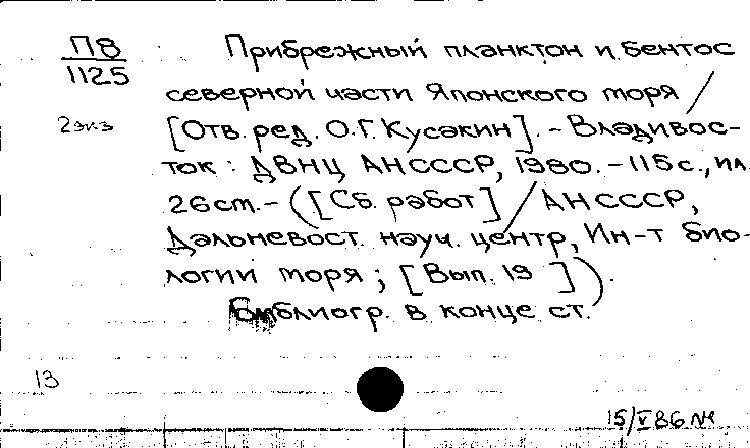 П8
1125
2экз
Прибрежный планктон и бентос
северной части Японского моря /
[Отв. ред. О.Г. Кусакин]. - Владивос-
ток : ДВНЦ АНСССР, 1980. - 115 с., ил.
26см. - ([Сб. работ] / АНСССР,
Дальневост. науч. центр, Ин-т био-
логии моря ; [Вып. 19 ]).
Библиогр. в конце ст.
13
15/V 86